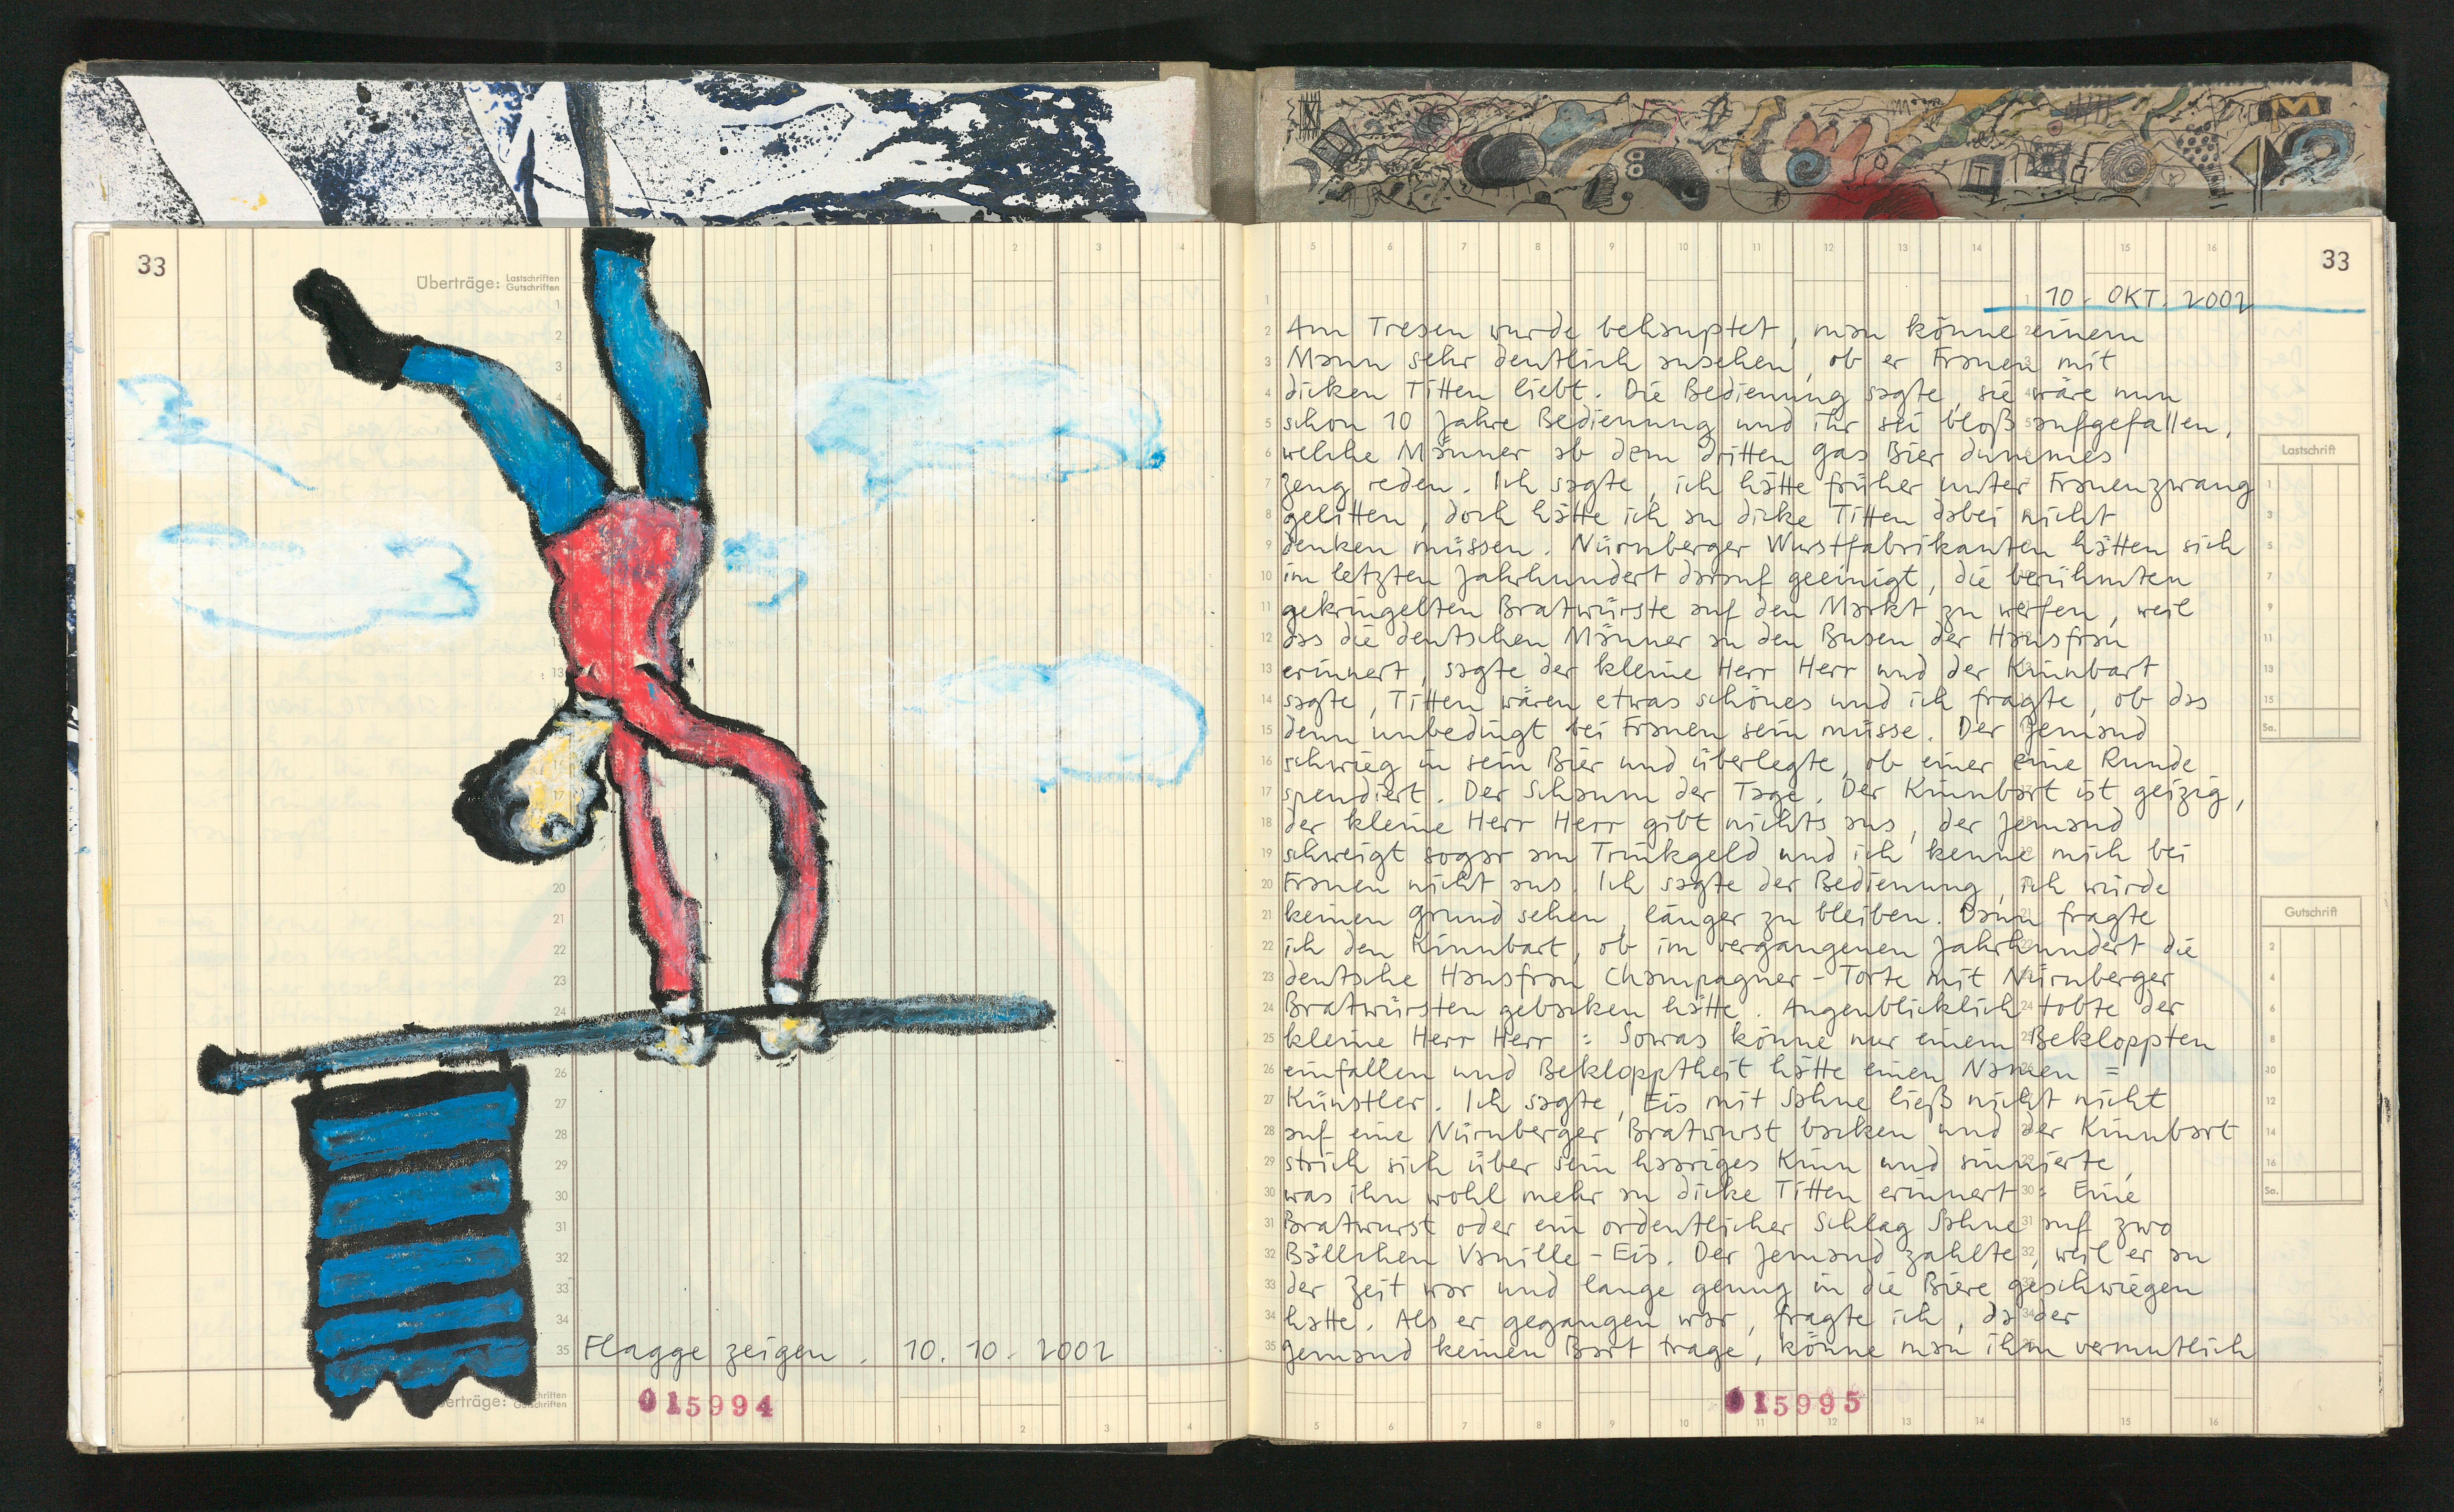 33
Überträge: Lastschriften
Gutschriften
Flagge zeigen . 10. 10. 2002
Überträge: Lastschriften
Gutschriften
015994
33
10. OKT. 2002
Am Tresen wurde behauptet, man könne einem
Mann sehr deutlich ansehen, ob er Frauen mit
dicken Titten liebt. Die Bedienung sagte, sie wäre nun
schon 10 Jahre Bedienung und ihr sei bloß aufgefallen,
welche Männer ab dem dritten Gas Bier dummes
Zeug reden. Ich sagte, ich hätte früher unter Frauenzwang
gelitten, doch hätte ich an dicke Titten dabei nicht
denken müssen. Nürnberger Wurstfabrikanten hätten sich
im letzten Jahrhundert darauf geeinigt, die berühmten
gekringelten Bratwürste auf den Markt zu werfen, weil
das die deutschen Männer an den Busen der Hausfrau
erinnert, sagte der kleine Herr Herr und der Kinnbart
sagte, Titten wären etwas schönes und ich fragte, ob das
denn unbedingt bei Frauen sein müsse. Der Jemand
schwieg in sein Bier und überlegte, ob einer eine Runde
spendiert. Der Schaum der Tage. Der Kinnbart ist geizig,
der kleine Herr Herr gibt nichts aus, der Jemand
schweigt sogar am Trinkgeld und ich kenne mich bei
Frauen nicht aus. Ich sagte der Bedienung, ich würde
keinen Grund sehen, länger zu bleiben. Dann fragte
ich den Kinnbart, ob im vergangenen Jahrhundert die
deutsche Hausfrau Champagner-Torte mit Nürnberger
Bratwürsten gebacken hätte. Augenblicklich tobte der
kleine Herr Herr: Sowas könne nur einem Bekloppten
einfallen und Beklopptheit hätte einen Namen =
Künstler. Ich sagte, Eis mit Sahne ließ nicht nicht
auf eine Nürnberger Bratwurst backen und der Kinnbart
strich sich über sein haariges Kinn und sinnierte,
was ihn wohl mehr an dicke Titten erinnert: Eine
Bratwurst oder ein ordentlicher Schlag Sahne auf zwo
Bällchen Vanille-Eis. Der Jemand zahlte, weil er an
der Zeit war und lange genug in die Biere geschwiegen
hatte. Als er gegangen war, fragte ich, da der
Jemand keinen Bart trage, könne man ihm vermutlich
Lastschrift
Sa.
Gutschrift
Sa.
015995